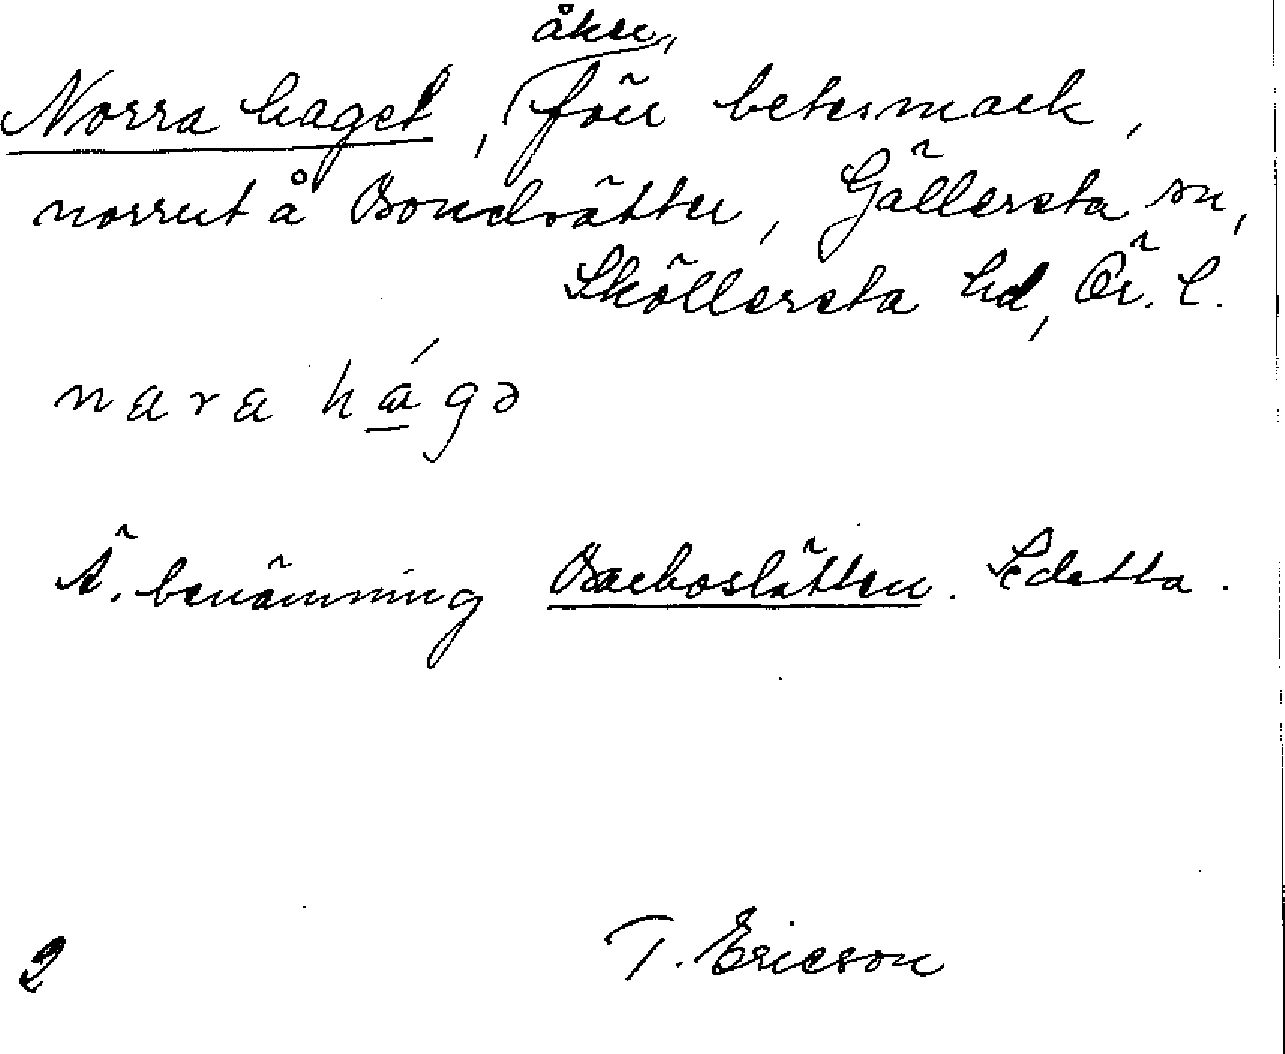 åker,
Norra haget, förr betesmark,
norrut å Bondsätter, Gällersta sn,
Sköllersta hd, Ör. l.
nara hágə
Ä. benämning Backoslätten. Se detta.
2 T. Ericson